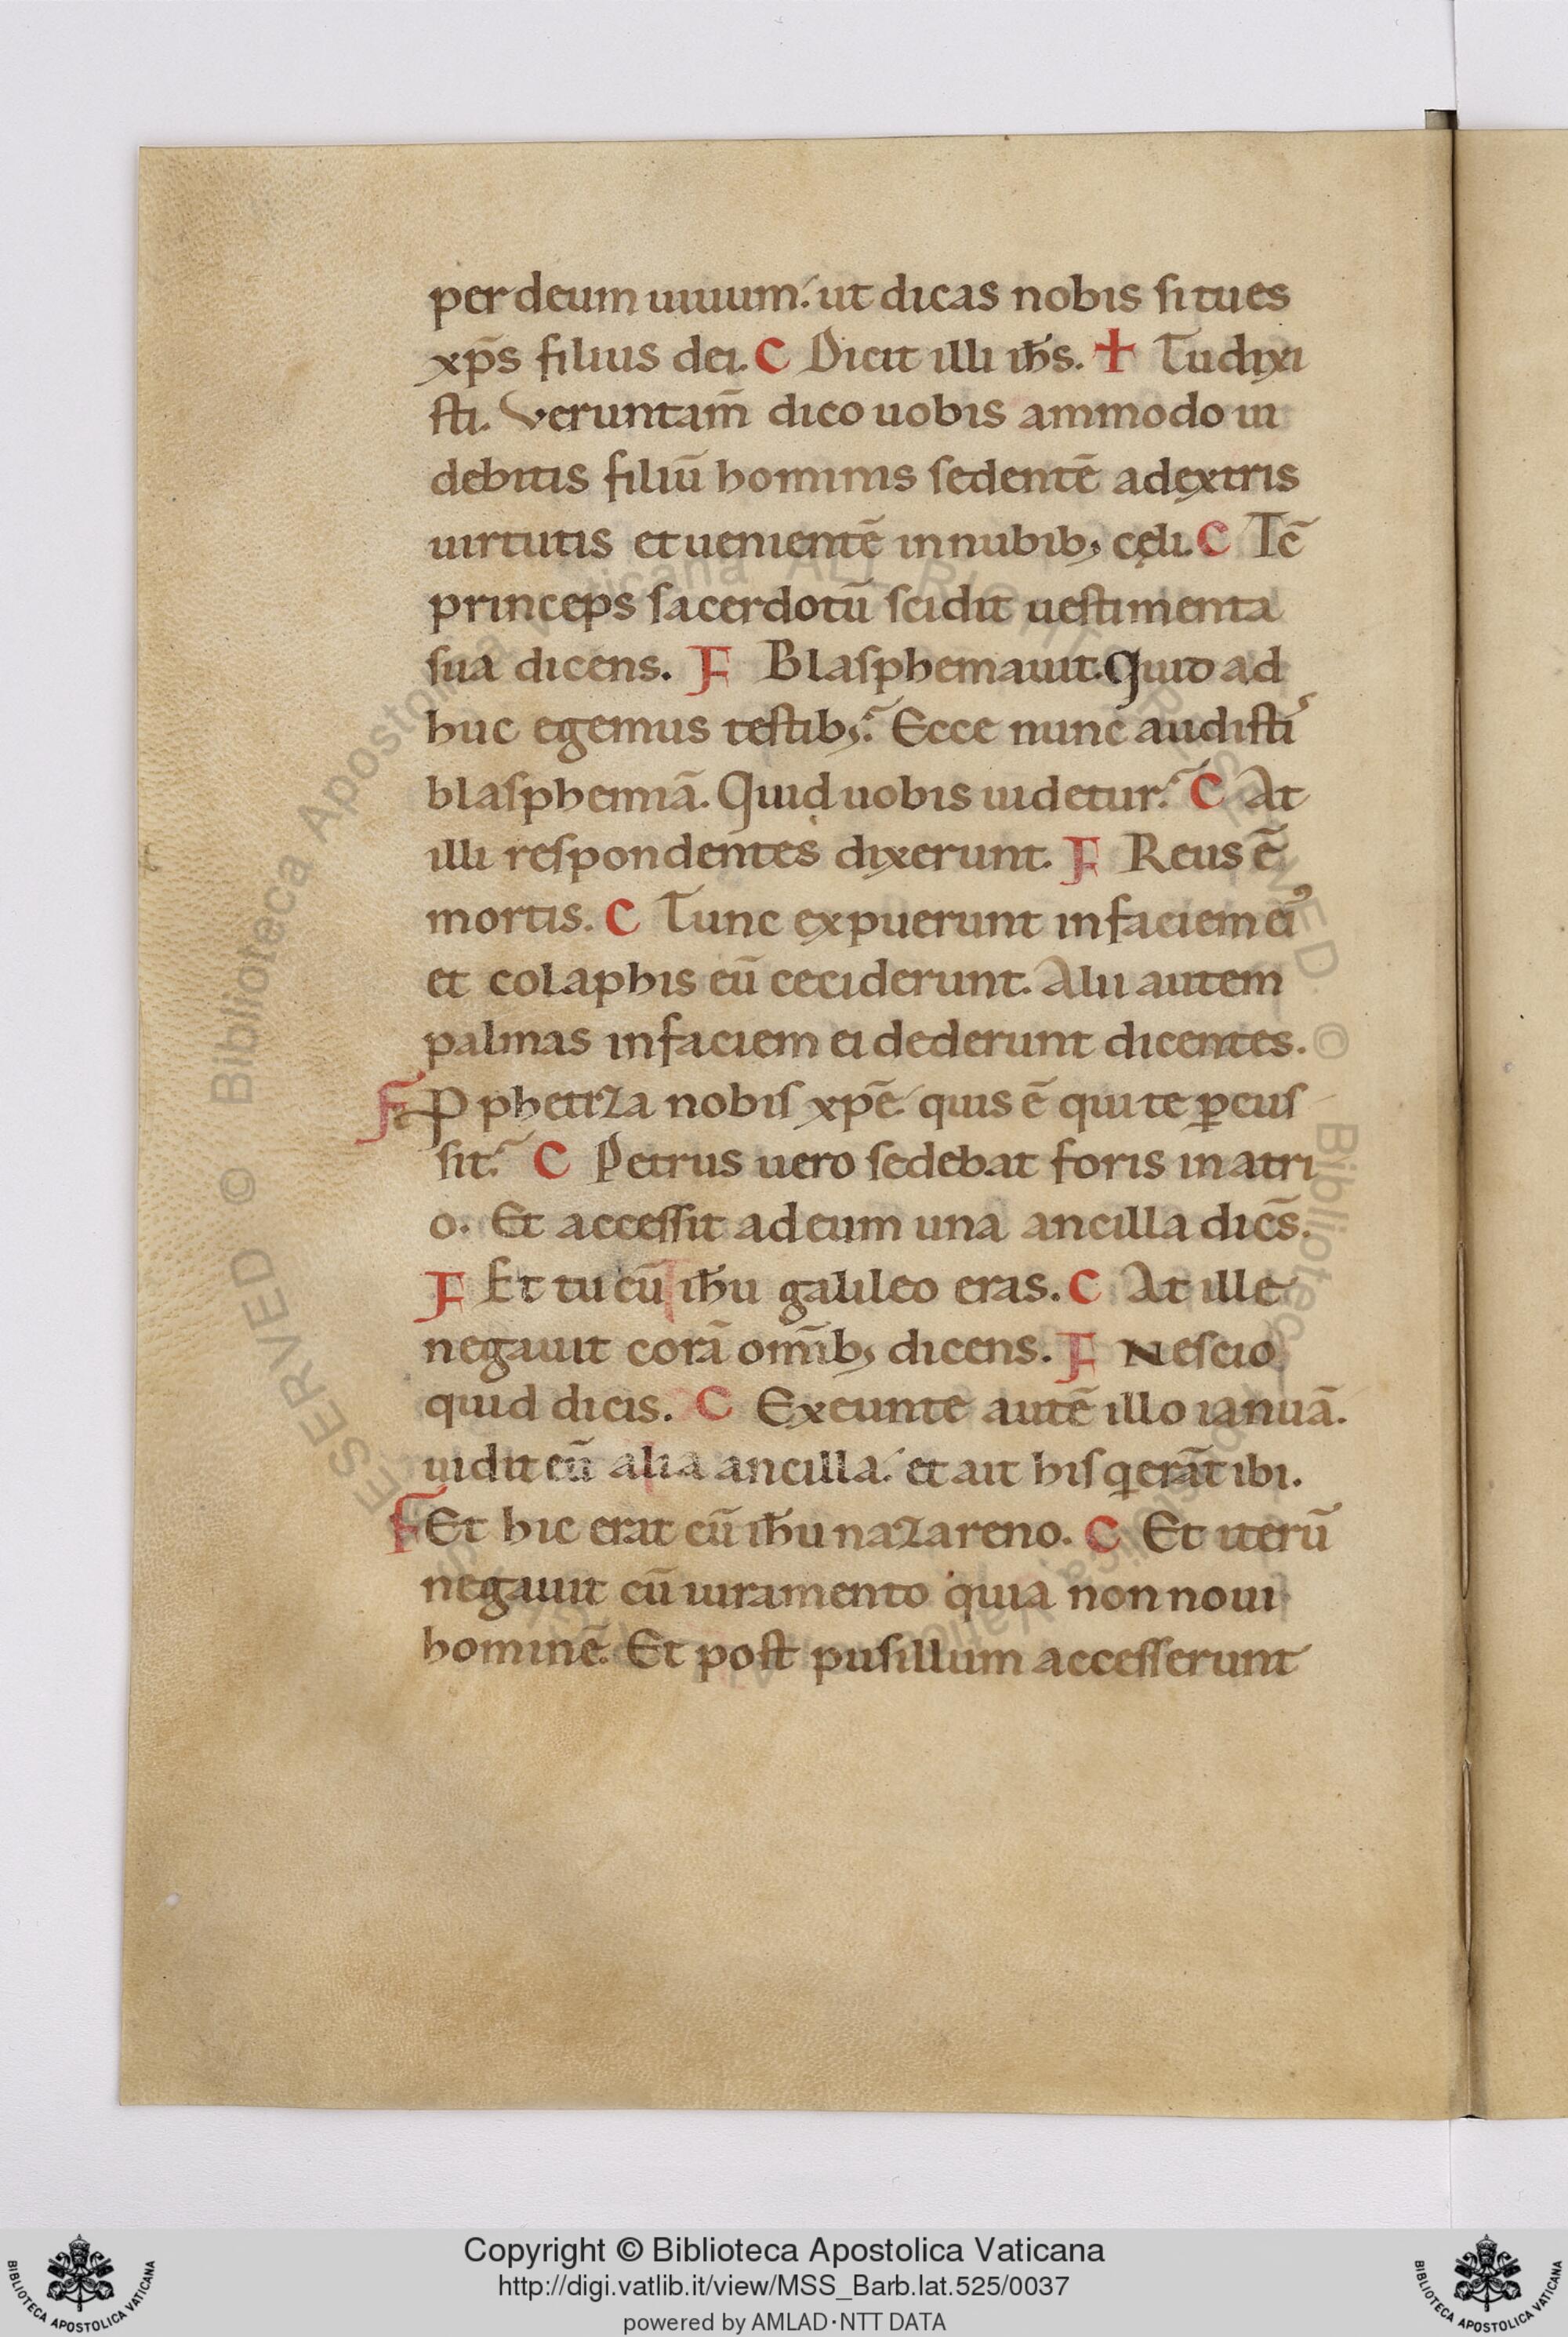 per deum uiuum. ut dicas nobis si tu es
xp̄s filius dei. C Dicit illi ih̄s. ✝ Tu dixi
sti. Veruntam̄ dico uobis ammodo ui
debitis filiū hominis sedentē a dextris
uirtutis et uenientē in nubib; cęli. C Tc̄
princeps sacerdotū scidit uestimenta
sua dicens. F Blasphemauit. Quid ad
huc egemus testib;? Ecce nunc audisti
blasphemiā. Quid uobis uidetur? C At
illi respondentes dixerunt. F Reus ē
mortis. C Tunc expuerunt in faciem ei᾽
et colaphis eū ceciderunt. Alii autem
palmas in faciem ei dederunt dicentes.
F Pphetiza nobis xp̄e quis ē qui te ꝑcus
sit? C Petrus uero sedebat foris in atri
o. Et accessit ad eum una ancilla dicēs.
F Et tu cū ih̄u galileo eras. C At ille
negauit corā om̄ib; dicens. F Nescio
quid dicis. C Exeunte autē illo ianuā.
uidit eū alia ancilla. et ait his q̄ erāt ibi.
F Et hic erat cū ih̄u nazareno. C Et iterū
negauit cū iuramento quia non noui
hominē. Et post pusillum accesserunt
Copyright © Biblioteca Apostolica Vaticana
http://digi.vatlib.it/view/MSS_Barb.lat.525/0037
powered by AMLAD·NTT DATA